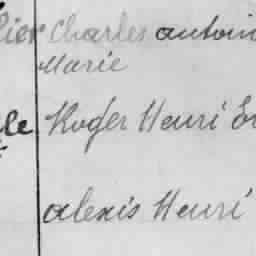 Charles antoin
Marie
Roger Henri
alexis Henri